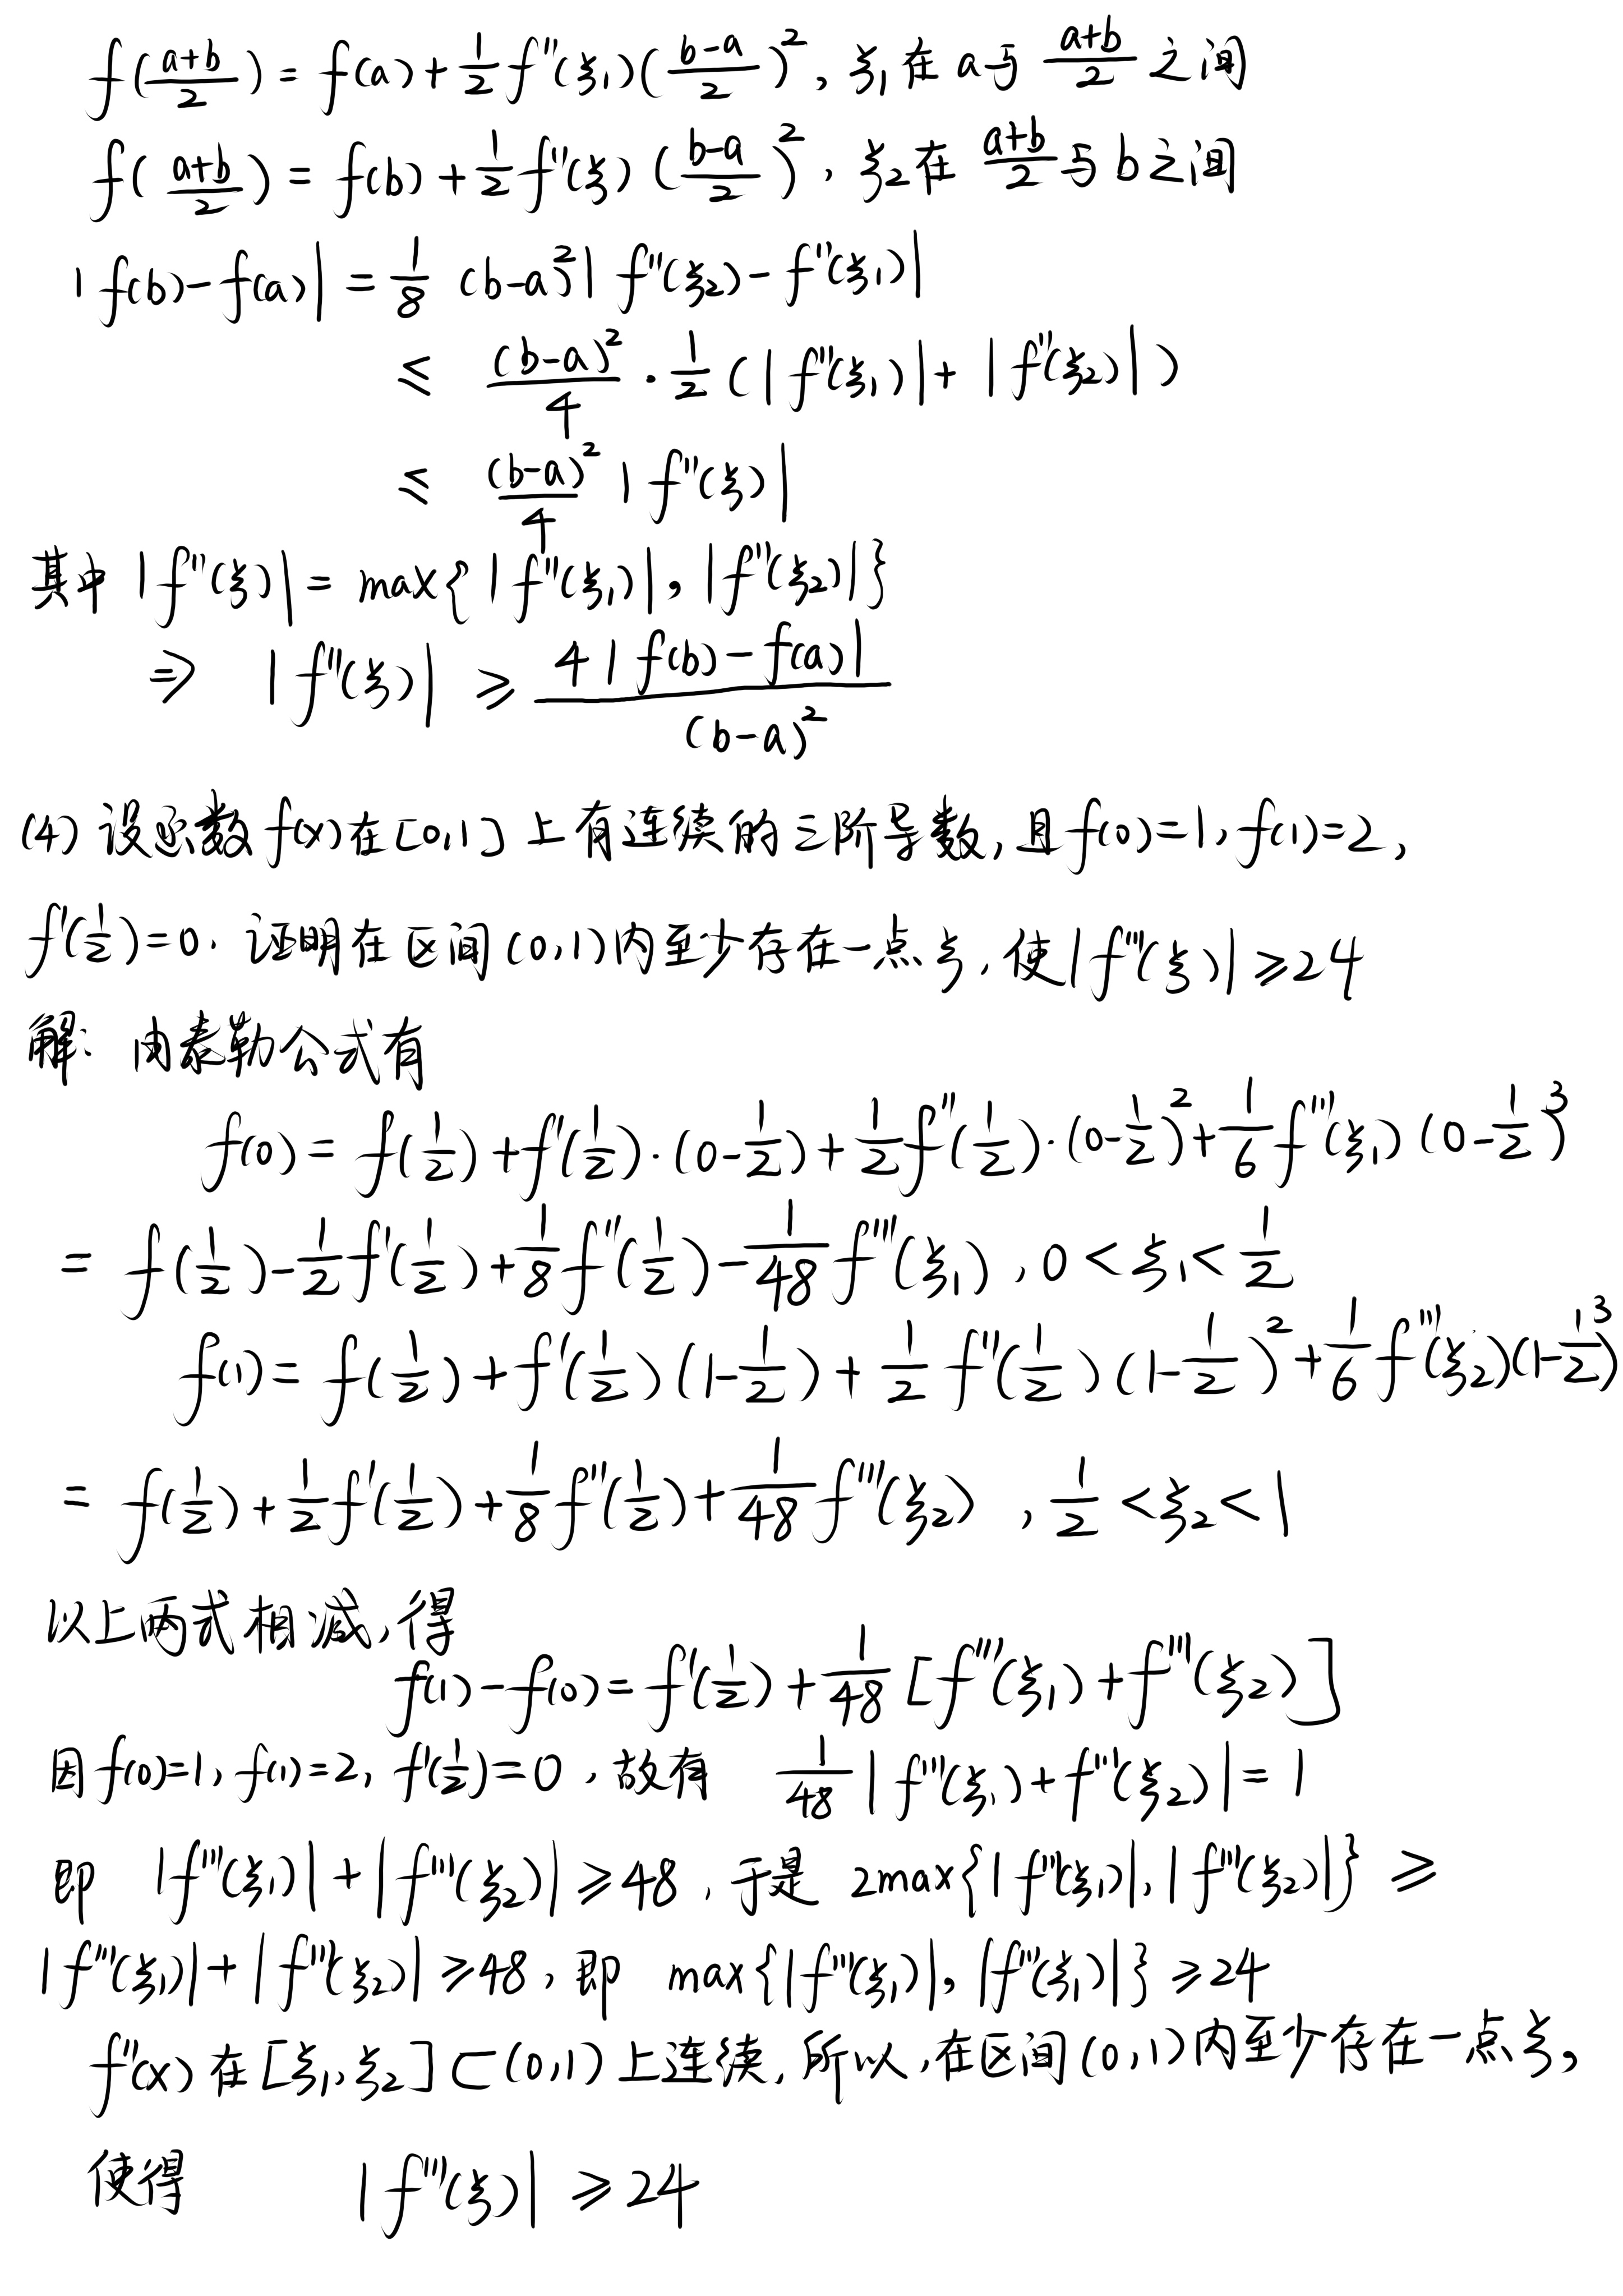 f((a+b)/2) = f(a) + 1/2 f''(ξ₁)((b-a)/2)², ξ₁在 a与 (a+b)/2 之间
f((a+b)/2) = f(b) + 1/2 f''(ξ)((b-a)/2)², ξ₂在 (a+b)/2 与 b之间
|f(b)-f(a)| = 1/8 (b-a)²|f''(ξ₂)-f''(ξ₁)|
≤ (b-a)²/4 · 1/2 (|f''(ξ₁)|+|f''(ξ₂)|)
≤ (b-a)²/4 |f''(ξ)|
其中 |f''(ξ)| = max{|f''(ξ₁)|, |f''(ξ₂)|}
⇒ |f''(ξ)| ≥ 4|f(b)-f(a)|/(b-a)²
(4) 设函数f(x)在[0,1]上有连续的三阶导数,且f(0)=1,f(1)=2,
f'(1/2)=0. 证明在区间(0,1)内至少存在一点ξ,使|f'''(ξ)|≥24
解: 由泰勒公式有
f(0) = f(1/2)+f'(1/2)·(0-1/2)+1/2f''(1/2)·(0-1/2)²+1/6f'''(ξ₁)(0-1/2)³
= f(1/2)-1/2f'(1/2)+1/8f''(1/2)-1/48f'''(ξ₁), 0<ξ₁<1/2
f(1)= f(1/2)+f'(1/2)(1-1/2)+1/2 f''(1/2)(1-1/2)²+1/6f'''(ξ₂)(1-1/2)³
= f(1/2)+1/2f'(1/2)+1/8f''(1/2)+1/48f'''(ξ₂), 1/2<ξ₂<1
以上两式相减,得
f(1)-f(0)=f'(1/2)+1/48[f'''(ξ₁)+f'''(ξ₂)]
因f(0)=1,f(1)=2,f'(1/2)=0,故有 1/48|f'''(ξ₁)+f'''(ξ₂)|=1
即 |f'''(ξ₁)|+|f'''(ξ₂)|≥48,于是 2max{|f'''(ξ₁)|,|f'''(ξ₂)|} ≥
|f'''(ξ₁)|+|f'''(ξ₂)|≥48,即 max{|f'''(ξ₁)|,|f'''(ξ₁)|}≥24
f'''(x)在[ξ₁,ξ₂]⊂(0,1)上连续,所以,在区间(0,1)内至少存在一点ξ,
使得 |f'''(ξ)| ≥24